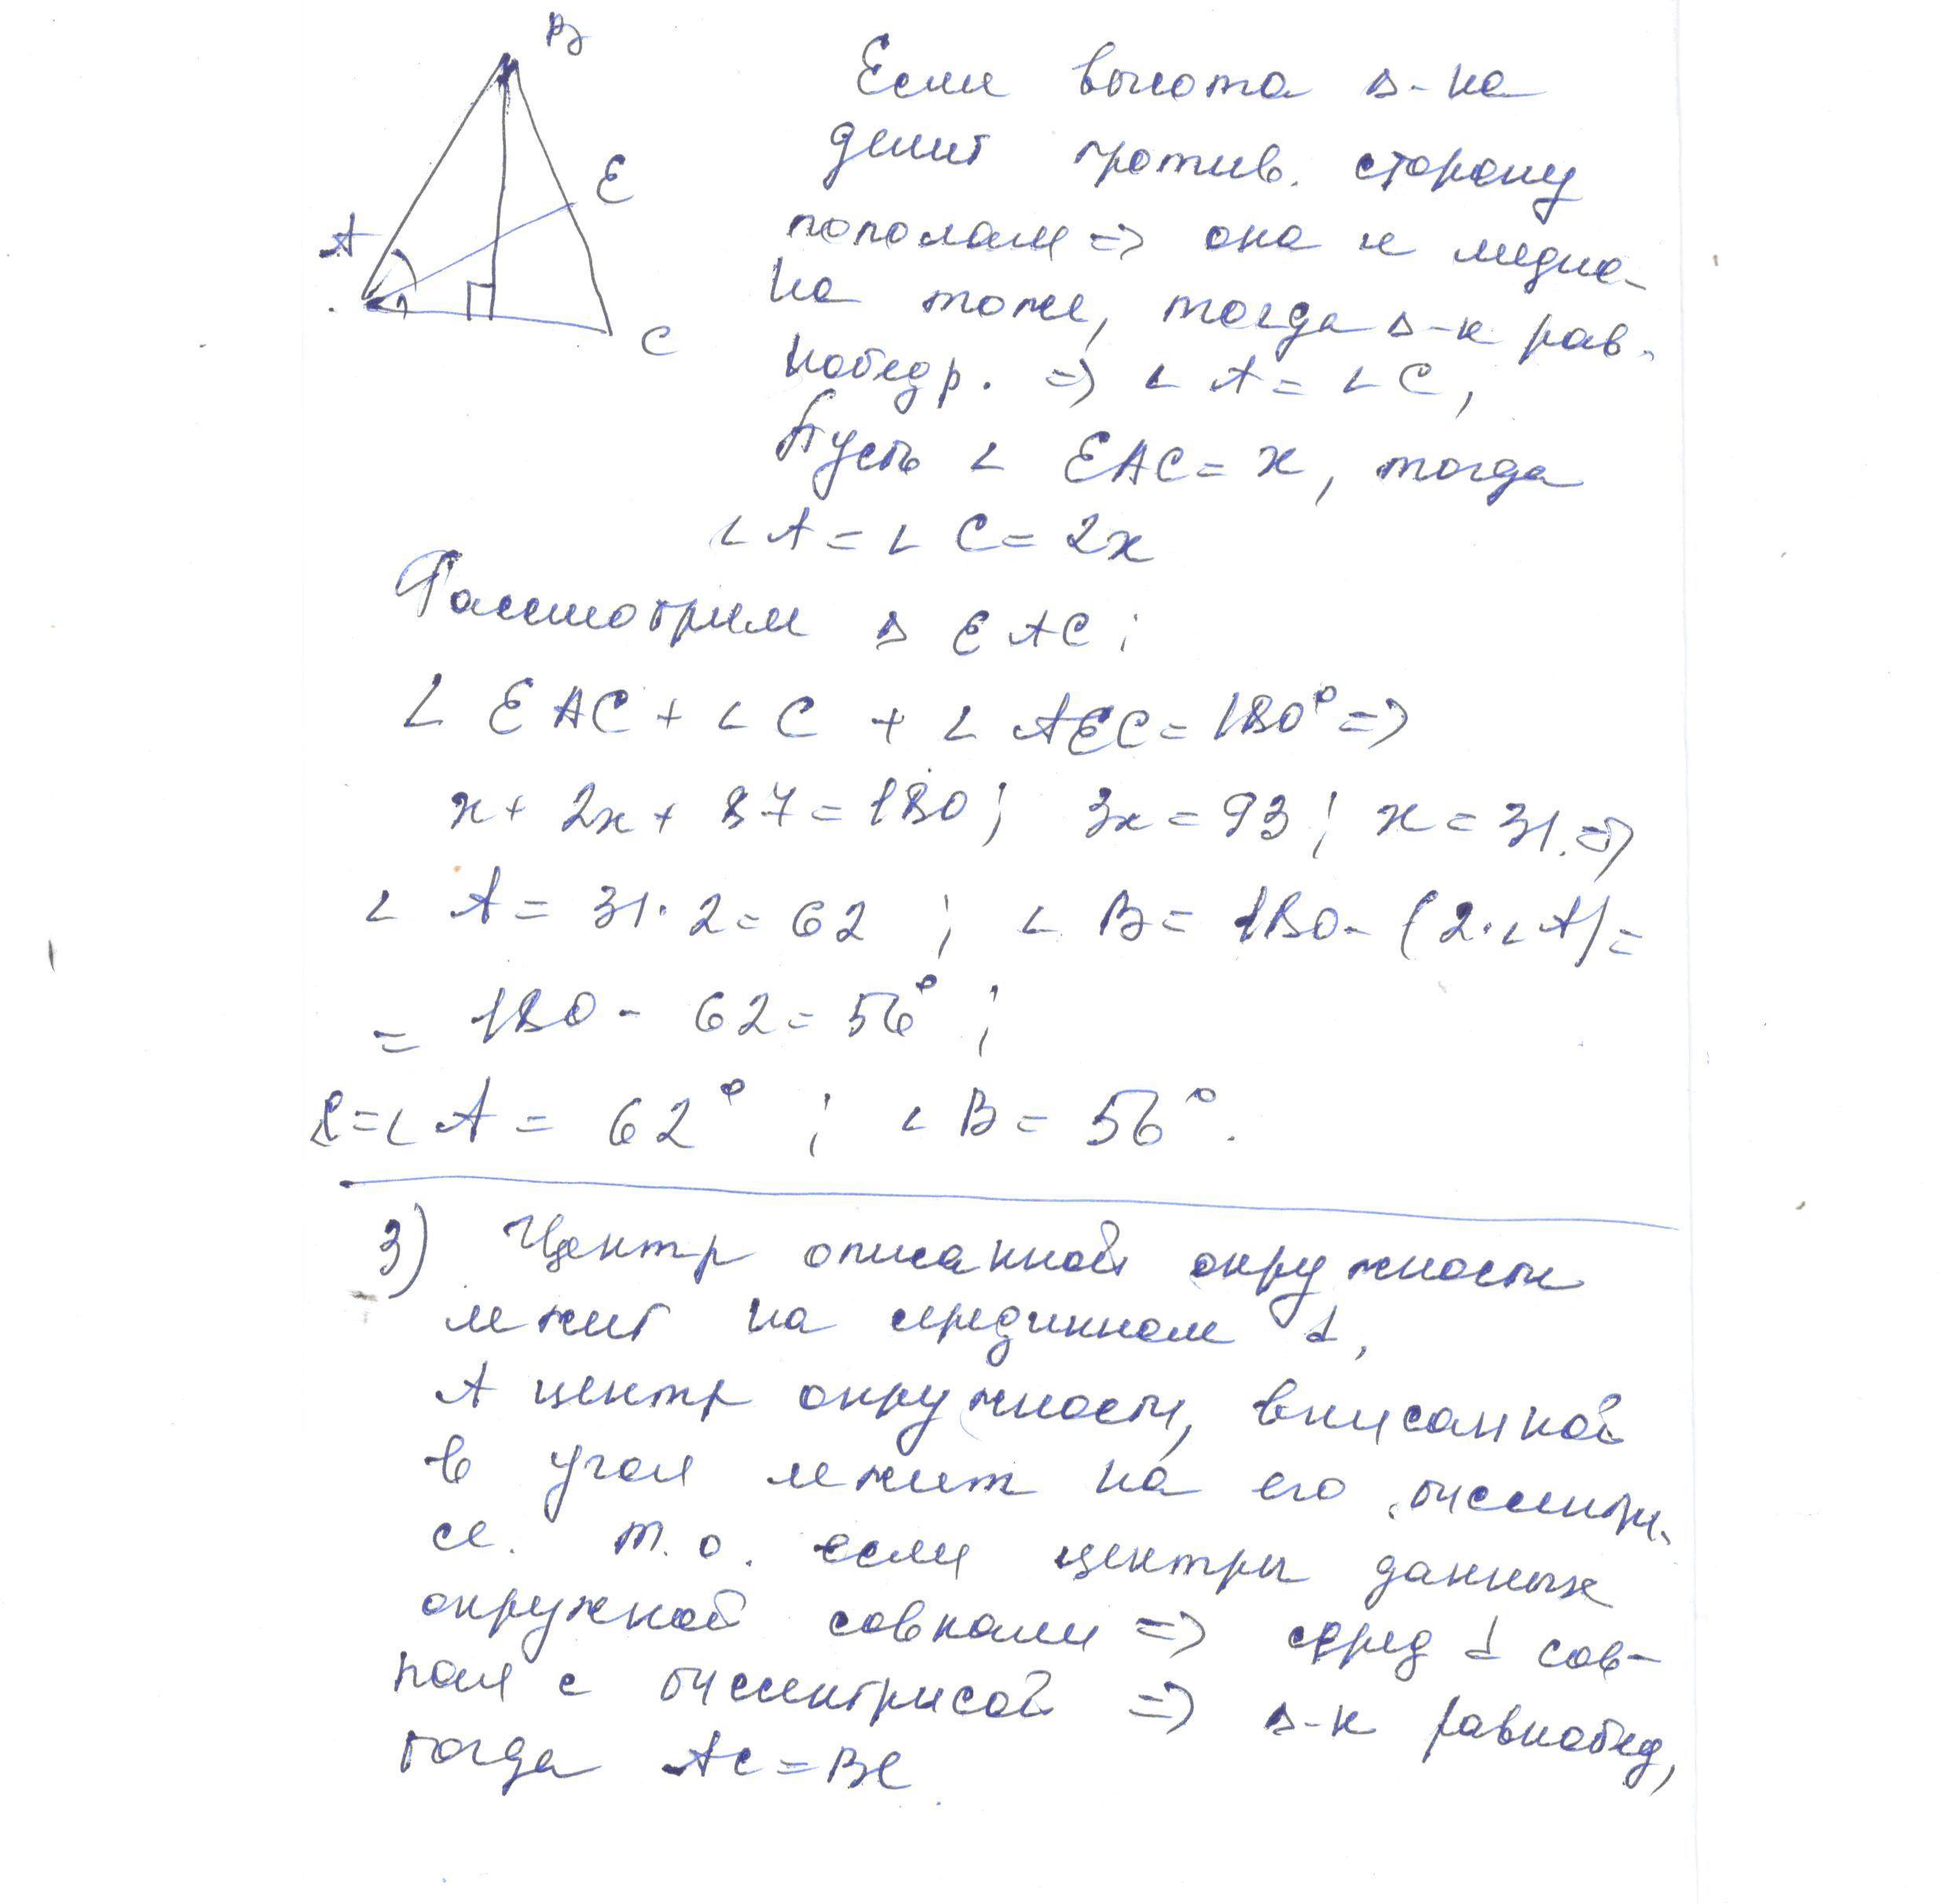 B
E
A
C
Если высота Δ-ка
делит против. сторону
пополам => она и медиа-
на тоже, тогда Δ-к рав-
нобедр. => ∠ A = ∠ C,
Пусть ∠ EAC = x, тогда
∠ A = ∠ C = 2x
Рассмотрим Δ EAC:
∠ EAC + ∠ C + ∠ AEC = 180° =>
x + 2x + 87 = 180; 3x = 93; x = 31. =>
∠ A = 31·2 = 62 ; ∠ B = 180 - (2·∠A) =
= 180 - 62 = 56° ;
C = ∠ A = 62° ; ∠ B = 56°.
3) Центр описанной окружности
лежит на серединном ⊥,
А центр окружности, вписанной
в угол лежит на его биссектри-
се. т.о. если центры данных
окружной совпали => серед ⊥ сов-
пал с биссектрисой => Δ-к равнобед,
тогда AC = BC